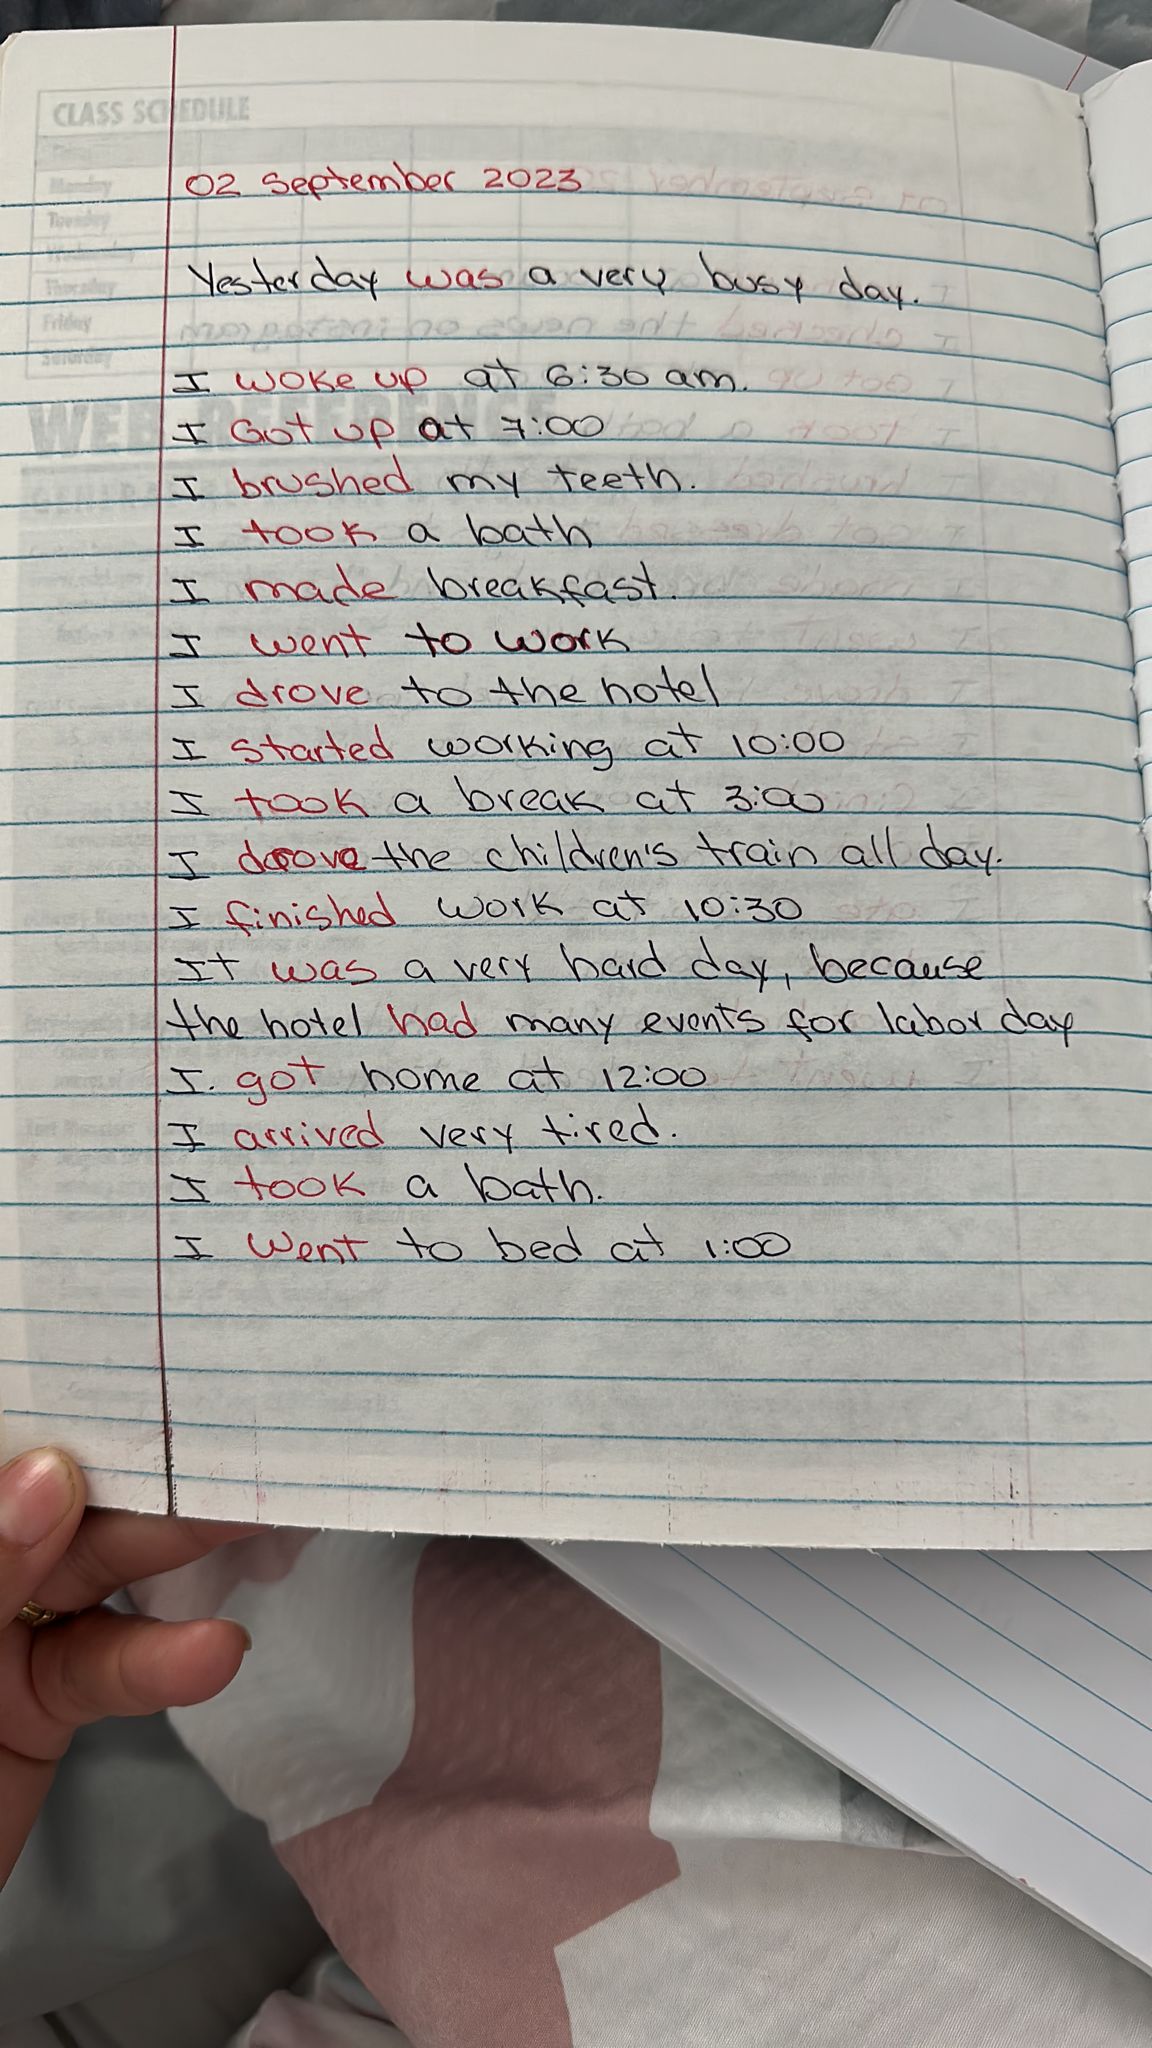 CLASS SCHEDULE
Monday
Tuesday
Wednesday
Thursday
Friday
Saturday
02 September 2023
Yesterday was a very busy day.
I woke up at 6:30 am.
I Got up at 7:00
I brushed my teeth.
I took a bath
I made breakfast.
I went to work
I drove to the hotel
I started working at 10:00
I took a break at 3:00
I drove the children's train all day.
I finished work at 10:30
It was a very hard day, because
the hotel had many events for labor day
I. got home at 12:00
I arrived very tired.
I took a bath.
I went to bed at 1:00